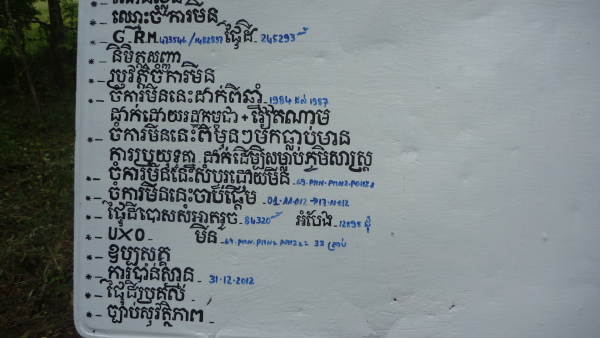 * - ឈ្មោះចំការមីន
* - G.R.M 473546/1482857 ផ្ទៃដី 245293 ម²
* - និមិត្តសញ្ញា
* - ប្រវត្តិចំការមីន
* - ចំការមីននេះដាក់ពីឆ្នាំ 1984 ដល់ 1987
ដាក់ដោយរដ្ឋកម្ពុជា + វៀតណាម
* - ចំការមីននេះពីមុនៗមកធ្លាប់មាន
ការប្រយុទ្ធគ្នា ដាក់ដើម្បីសម្លាប់ភូមិសាស្ត្រ
* - ចំការមីនដែលសំបូរដោយមីន 69.PMN.PMN2.POMZ2
* - ចំការមីននេះចាប់ផ្តើម 01.11.012 → 17.11.012
* - ផ្ទៃដីបោសសំអាតរួច 84320 ម² អំបែង 12898 ដុំ
* - UXO - មីន 69.PMN.PMN2.POMZ2 = 33 គ្រាប់
* - ឧប្បសគ្គ
* - ការប៉ាន់ស្មាន 31.12.2012
* - ផ្ទៃដីប្រគល់ -
* - ច្បាប់សុវត្ថិភាព -